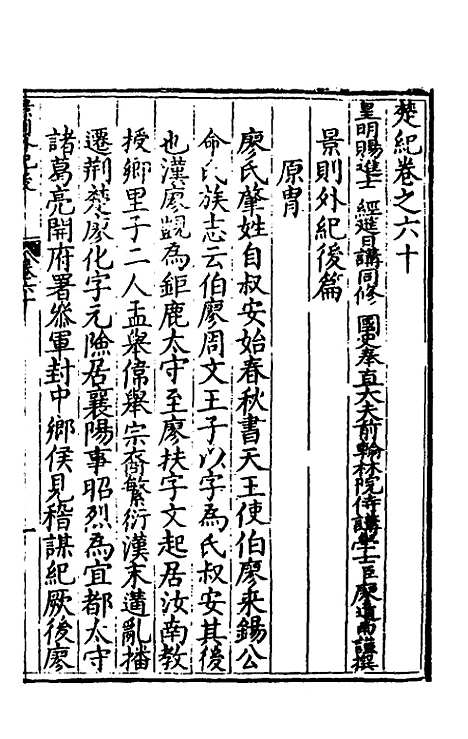 楚紀卷之六十
皇明賜進士 經筵日講同修 國史奉直大夫前翰林院侍講學士臣廖道南謹撰
景則外紀後篇
原胄
廖氏肇姓自叔安始春秋書天王使伯廖來錫公
命氏族志云伯廖周文王子以字為氏叔安其後
也漢廖觀為鉅鹿太守至廖扶字文起居汝南教
授鄉里子二人孟舉偉舉宗裔繁衍漢末遘亂播
遷荆楚廖化字元儉居襄陽事昭烈為宜都太守
諸葛亮開府署叅軍封中鄉侯見稽謀紀厥後廖